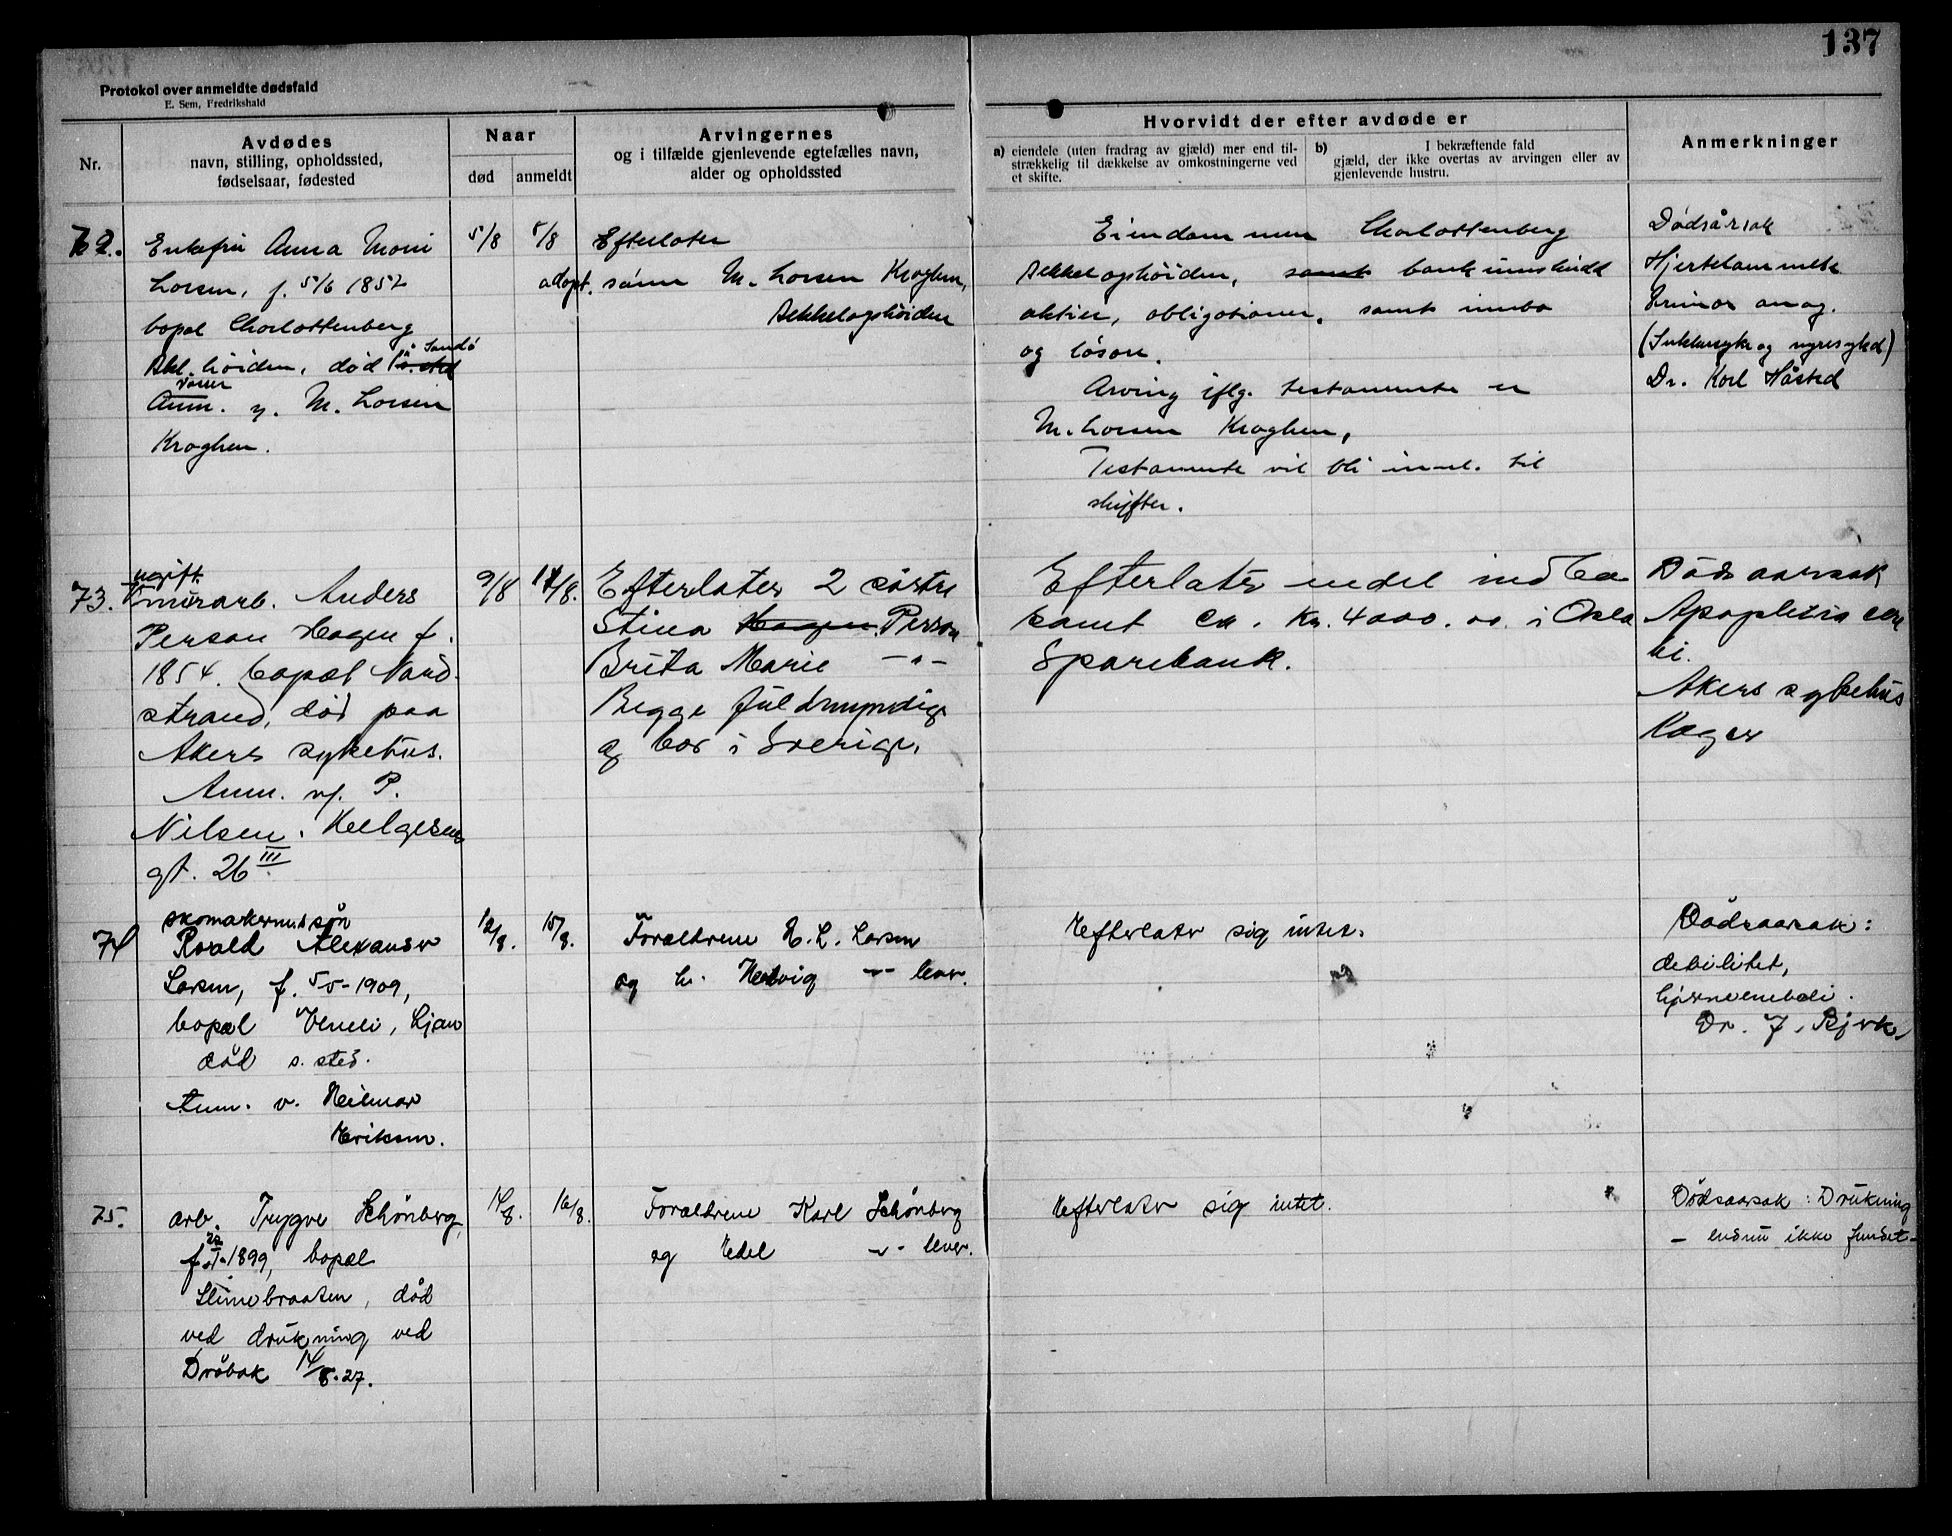 137
Protokol over anmeldte dødsfald
E. Sem, Fredrikshald
Nr.
Avdødes
navn, stilling, opholdssted,
fødselsaar, fødested
Naar
død
anmeldt
Arvingernes
og i tilfælde gjenlevende egtefælles navn,
alder og opholdssted
Hvorvidt der efter avdøde er
a) eiendele (uten fradrag av gjæld) mer end til-
strækkelig til dækkelse av omkostningerne ved
et skifte.
b) I bekræftende fald
gjæld, der ikke overtas av arvingen eller av
gjenlevende hustru.
Anmerkninger
72.
Enkefru Anna Marie
Larsen, f. 5/6 1852
bopæl Charlottenberg
høiden, død på Sandø
Anm. v. M. Larsen
Kroghen.
5/8
5/8
Efterlater
adopt. sønn M. Larsen Kroghen,
Bekkelagshøiden
Eiendommen Charlottenberg
Bekkelagshøiden, samt bankinnskudd
aktier, obligationer, samt innbo
og løsøre.
Arving iflg. testamente er
M. Larsen Kroghen,
Testamente vil bli innl. til
skiften.
Dødsårsak
Hjertelammelse
(Sukkersyke og nyresyked)
Dr. Karl Håsted
73.
ugift
murarb. Anders
Person Hagen f.
1854. bopæl Nord-
strand, død paa
Akers sykehus.
Anm. v. P.
Nilsen. Helgesens
gt. 26 III
9/8
17/8.
Efterlater 2 søstre
Stina Hagen Person
Brita Marie -"-
Begge fuldmyndig
og bor i Sverige.
Efterlater endel indbo
samt ca. Kr. 4000.00 i Oslo
Sparebank.
Dødsaarsak
Apoplexia cere
bri.
Akers sykehus
Kager
74
skomakermest søn
Roald Alexander
Larsen, f. 5/5-1909,
bopæl Ljan
død s. sted.
Anm. v. Heilmar
Eriksen.
12/8.
15/8.
Forældrene E. L. Larsen
og h. Hedvig -"- lever.
Efterlater sig intet.
Dødsaarsak:
debilitet,
hjerneemboli.
Dr. J. Bjerke
75.
arb. Trygve Schönberg,
f. 1899, bopæl
Slimebraaten, død
ved drukning ved
Drøbak 14/8.27.
14/8.
16/8.
Forældrene Karl Schönberg
og Edel -"- lever.
Efterlater sig intet.
Dødsaarsak: Drukning
- endnu ikke fundet -